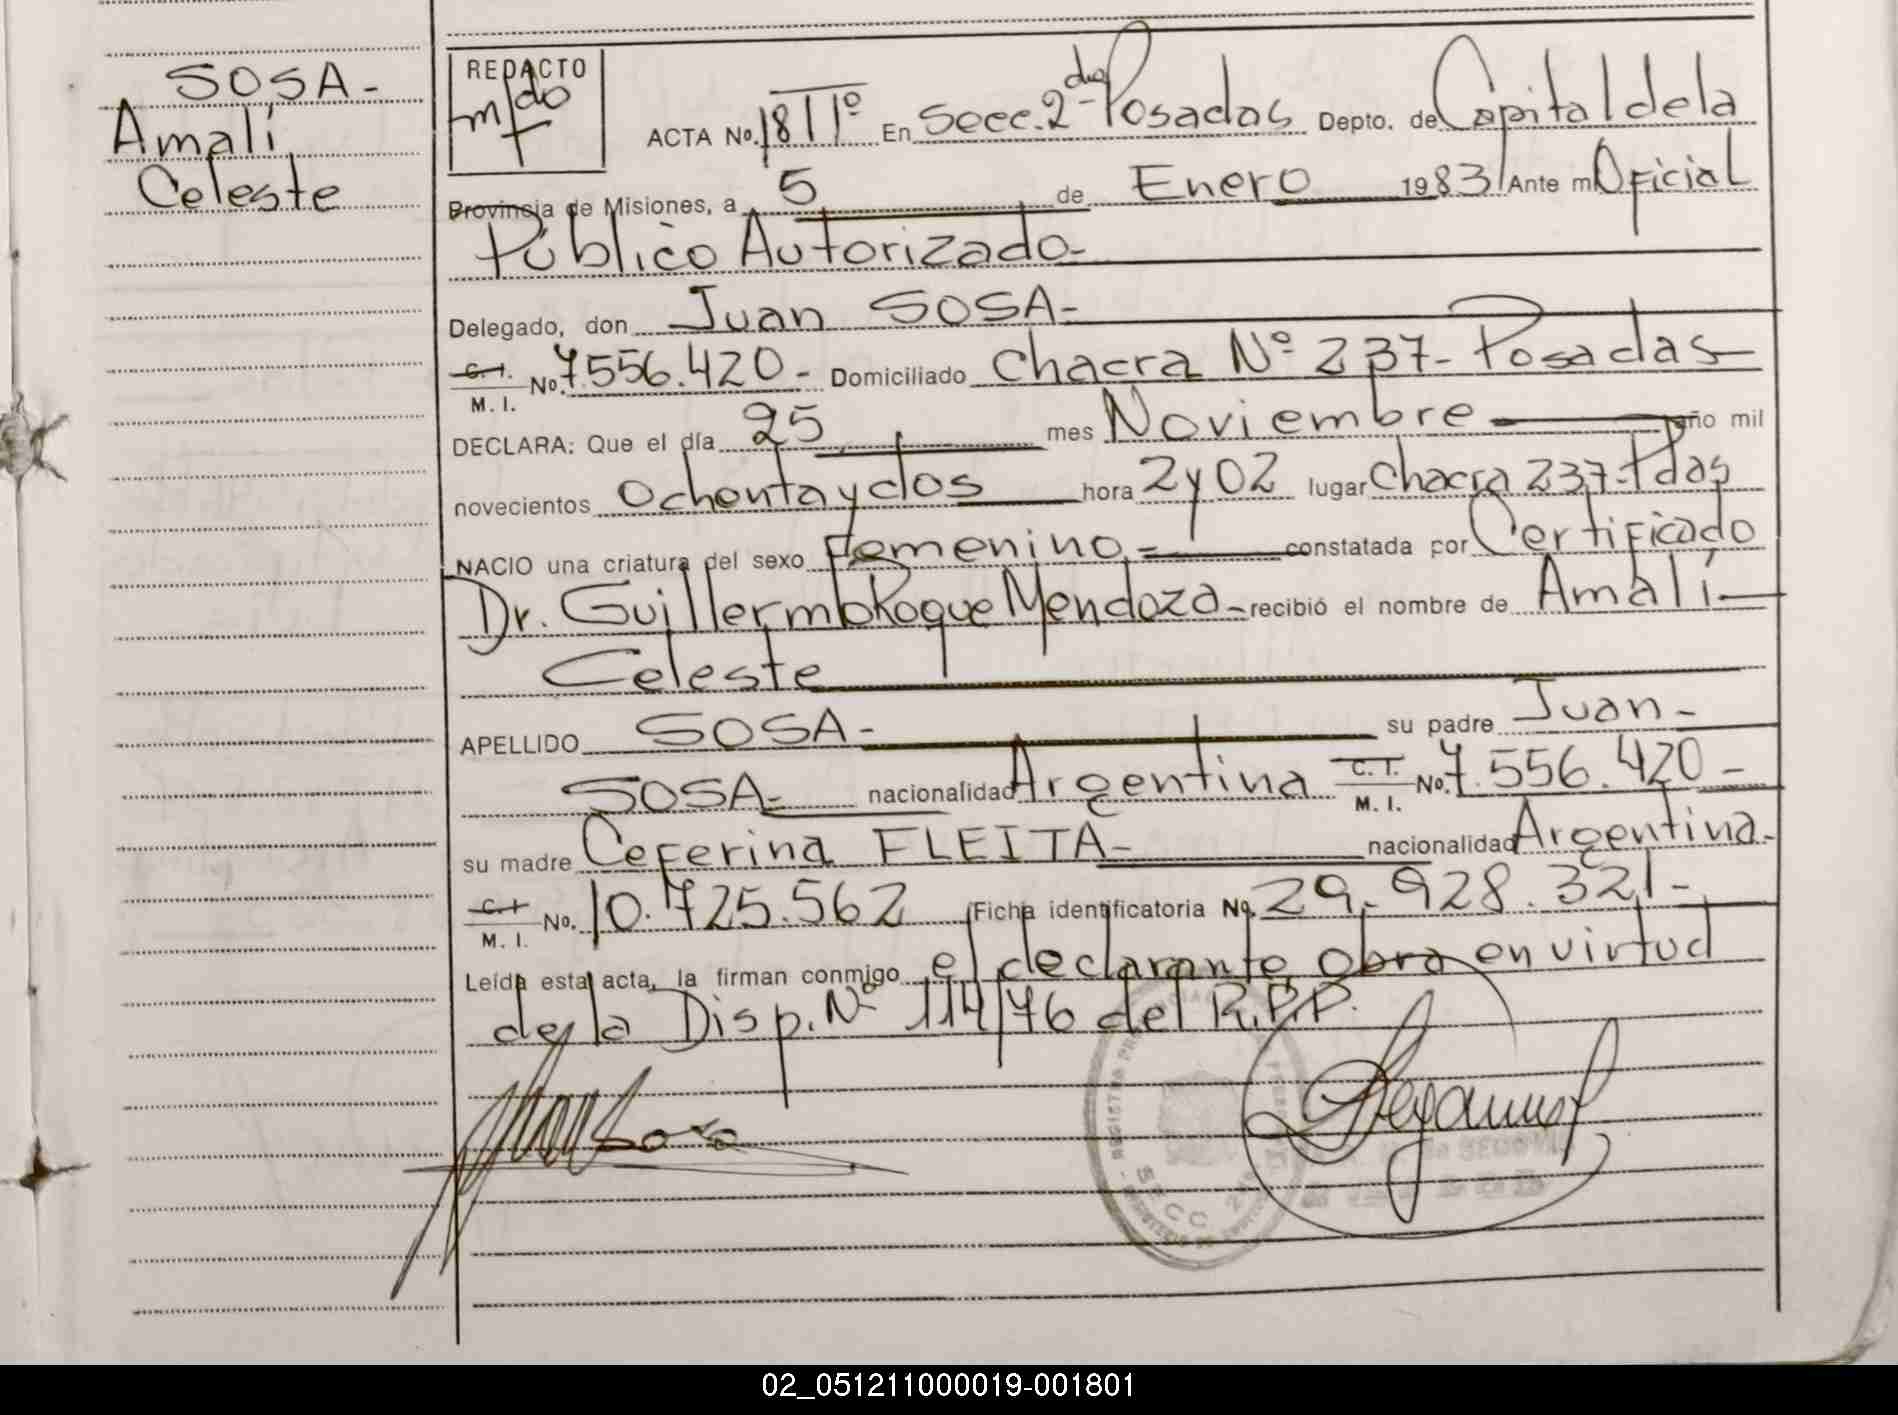 SOSA-
Amalí
Celeste
REDACTO
ACTA No. 18 Tº En Secc. 2da- Posadas Depto. de Capital de la
Provincia de Misiones, a 5 de Enero 1983 Ante mí Oficial
Público Autorizado-
Delegado, don Juan SOSA-
C. I.
M. I. No. 7.556.420- Domiciliado Chacra Nº 237- Posadas
DECLARA: Que el día 25 mes Noviembre año mil
novecientos ochenta y dos hora 2 y 02 lugar Chacra 237- Pdas
NACIO una criatura del sexo Femenino.= constatada por Certificado
Dr. Guillermo Roque Mendoza- recibió el nombre de Amalí
Celeste
APELLIDO SOSA- su padre Juan-
SOSA- nacionalidad Argentina C. I. M. I. No. 7.556.420-
su madre Ceferina FLEITA- nacionalidad Argentina-
C. I.
M. I. No. 10.725.562 Ficha identificatoria No. 29.928.321-
Leída esta acta, la firman conmigo el declarante, obra en virtud
de la Disp. Nº 114/76 del R.P.P.
Juan Sosa
SECC 2da
02_051211000019-001801